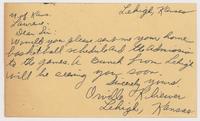 Lehigh, Kansas
U. of Kans.
Lawrence.
Dear Sir:
Would you please send me your home
basketball schedule & the admission
to the games. A bunch from Lehigh
will be seeing you soon.
Sincerely yours
Orville Kliewer
Lehigh, Kansas